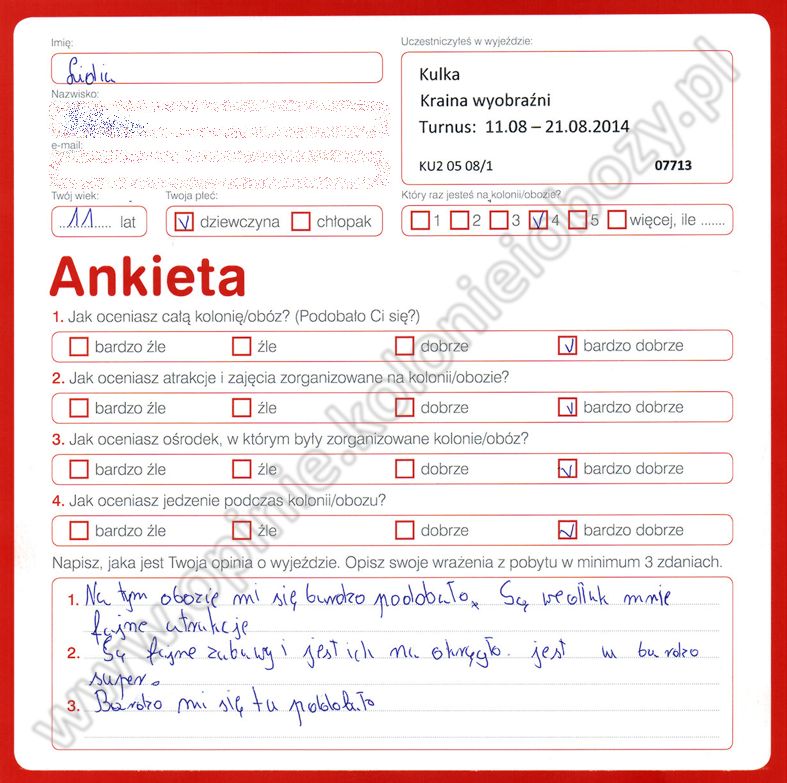 Imię:
Lidia
Nazwisko:
e-mail:
Twój wiek:
11 lat
Twoja płeć:
dziewczyna chłopak
Uczestniczyłeś w wyjeździe:
Kulka
Kraina wyobraźni
Turnus: 11.08 – 21.08.2014
KU2 05 08/1 07713
Który raz jesteś na kolonii/obozie?
1 2 3 4 5 więcej, ile .......
Ankieta
1. Jak oceniasz całą kolonię/obóz? (Podobało Ci się?)
bardzo źle źle dobrze bardzo dobrze
2. Jak oceniasz atrakcje i zajęcia zorganizowane na kolonii/obozie?
bardzo źle źle dobrze bardzo dobrze
3. Jak oceniasz ośrodek, w którym były zorganizowane kolonie/obóz?
bardzo źle źle dobrze bardzo dobrze
4. Jak oceniasz jedzenie podczas kolonii/obozu?
bardzo źle źle dobrze bardzo dobrze
Napisz, jaka jest Twoja opinia o wyjeździe. Opisz swoje wrażenia z pobytu w minimum 3 zdaniach.
1. Na tym obozie mi się bardzo podobało. Są według mnie
fajne atrakcje
2. Są fajne zabawy i jest ich na okrągło. jest bardzo
super.
3. Bardzo mi się tu podobało
www.opinie.kolonieiobozy.pl